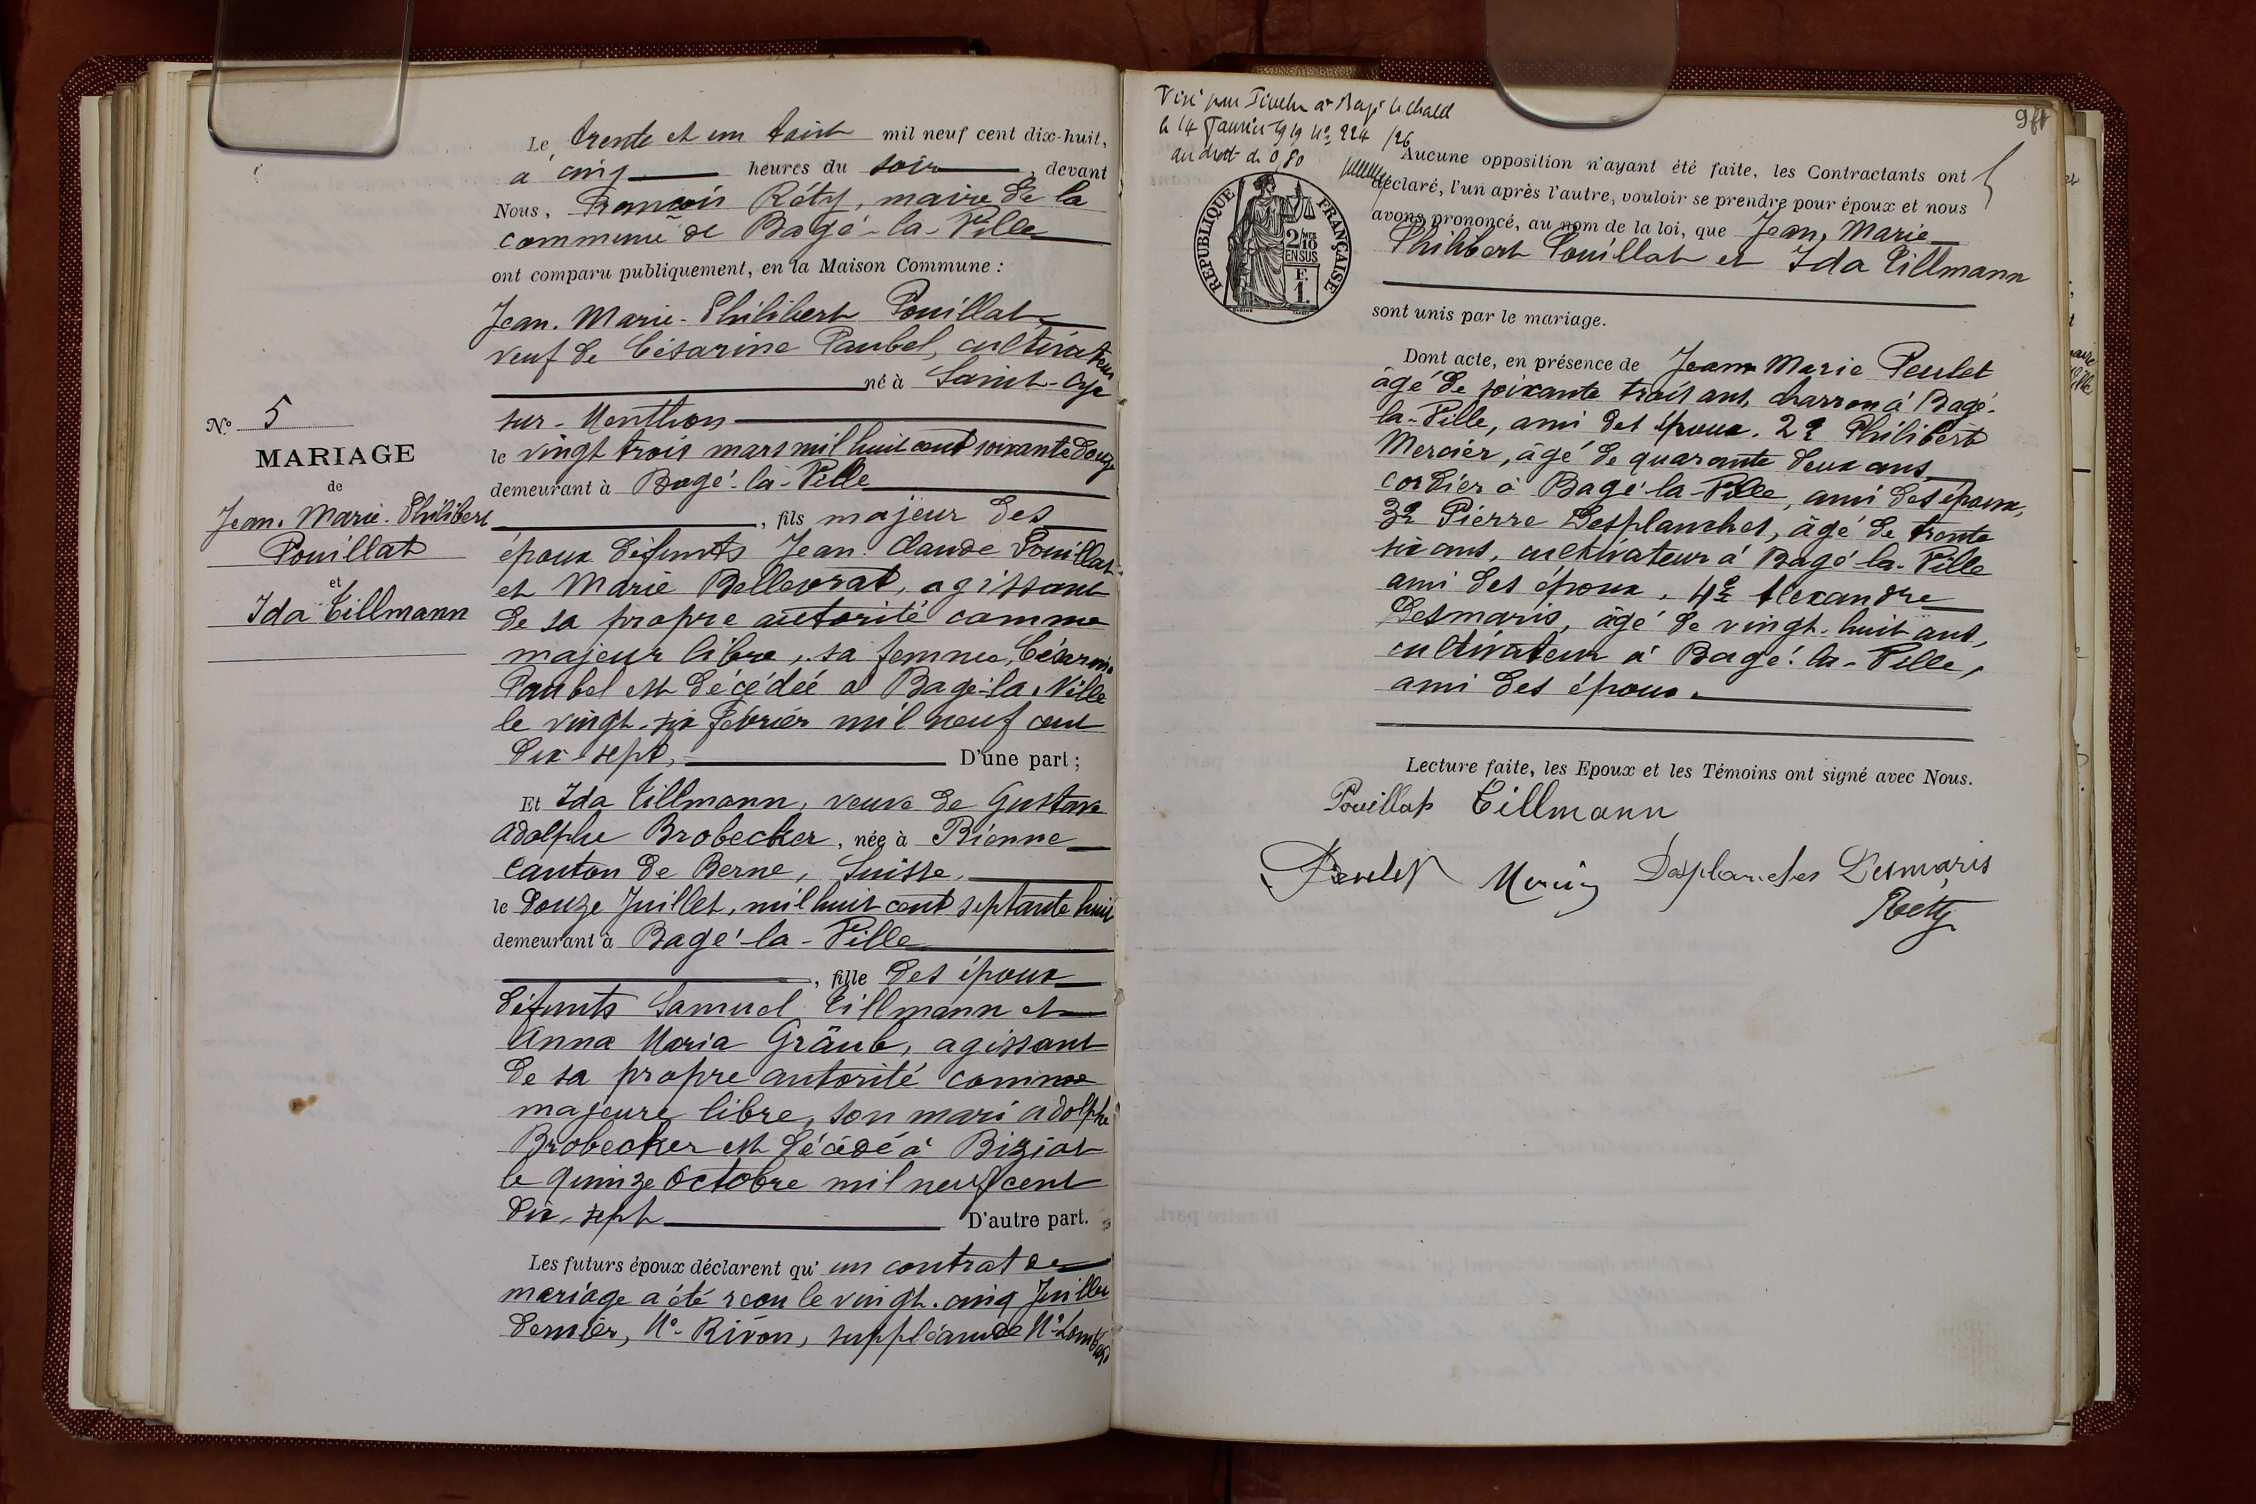 Le trente et un Août mil neuf cent dix-huit,
à cinq heures du soir, devant
Nous, François Réty, maire de la
commune de Bagé-la-Ville
ont comparu publiquement, en la Maison Commune :
Jean-Marie-Philibert Pouillat,
veuf de Césarine Paubel, cultivateur
né à Saint-Cyr
sur-Menthon
le vingt trois mars mil huit cent soixante douze
demeurant à Bagé-la-Ville
, fils majeur des
époux défunts Jean-Claude Pouillat
et Marie Bellevrat, agissant
de sa propre autorité comme
majeur libre, sa femme, Césarine
Paubel est décédée à Bagé-la-Ville
le vingt-six Février mil neuf cent
dix-sept, D'une part ;
Et Ida Tillmann, veuve de Gustave
Adolphe Brobecker, née à Bienne
Canton de Berne, Suisse,
le douze Juillet, mil huit cent septante huit
demeurant à Bagé-la-Ville
, fille des époux
défunts Samuel Tillmann et
Anna Maria Gräub, agissant
de sa propre autorité comme
majeure libre, son mari Adolphe
Brobecker est décédé à Biziat
le quinze Octobre mil neuf cent
dix-sept D'autre part.
Les futurs époux déclarent qu'un contrat de
mariage a été reçu le vingt-cinq Juillet
dernier, Me Rivon, suppléant de Me Lombard
No 5
MARIAGE
de
Jean-Marie-Philibert
Pouillat
et
Ida Tillmann
Visé pour Timbre à Bagé le Chatel
le 14 Janvier 1919 No 224 /26
au droit de 0,80
98
RÉPUBLIQUE FRANÇAISE
2/10
EN SUS
F.
1.
Aucune opposition n'ayant été faite, les Contractants ont
déclaré, l'un après l'autre, vouloir se prendre pour époux et nous
avons prononcé, au nom de la loi, que Jean, Marie
Philibert Pouillat et Ida Tillmann
sont unis par le mariage.
Dont acte, en présence de Jean Marie Peulet
âgé de soixante trois ans, charron à Bagé-
la-Ville, ami des époux. 2e Philibert
Mercier, âgé de quarante deux ans
cordier à Bagé-la-Ville, ami des époux,
3e Pierre Desplanches, âgé de trente
six ans, cultivateur à Bagé-la-Ville
ami des époux, 4e Alexandre
Desmaris, âgé de vingt-huit ans,
cultivateur à Bagé-la-Ville,
ami des époux.
Lecture faite, les Epoux et les Témoins ont signé avec Nous.
Pouillat Tillmann
Peulet Mercier Desplanches Desmaris
Réty